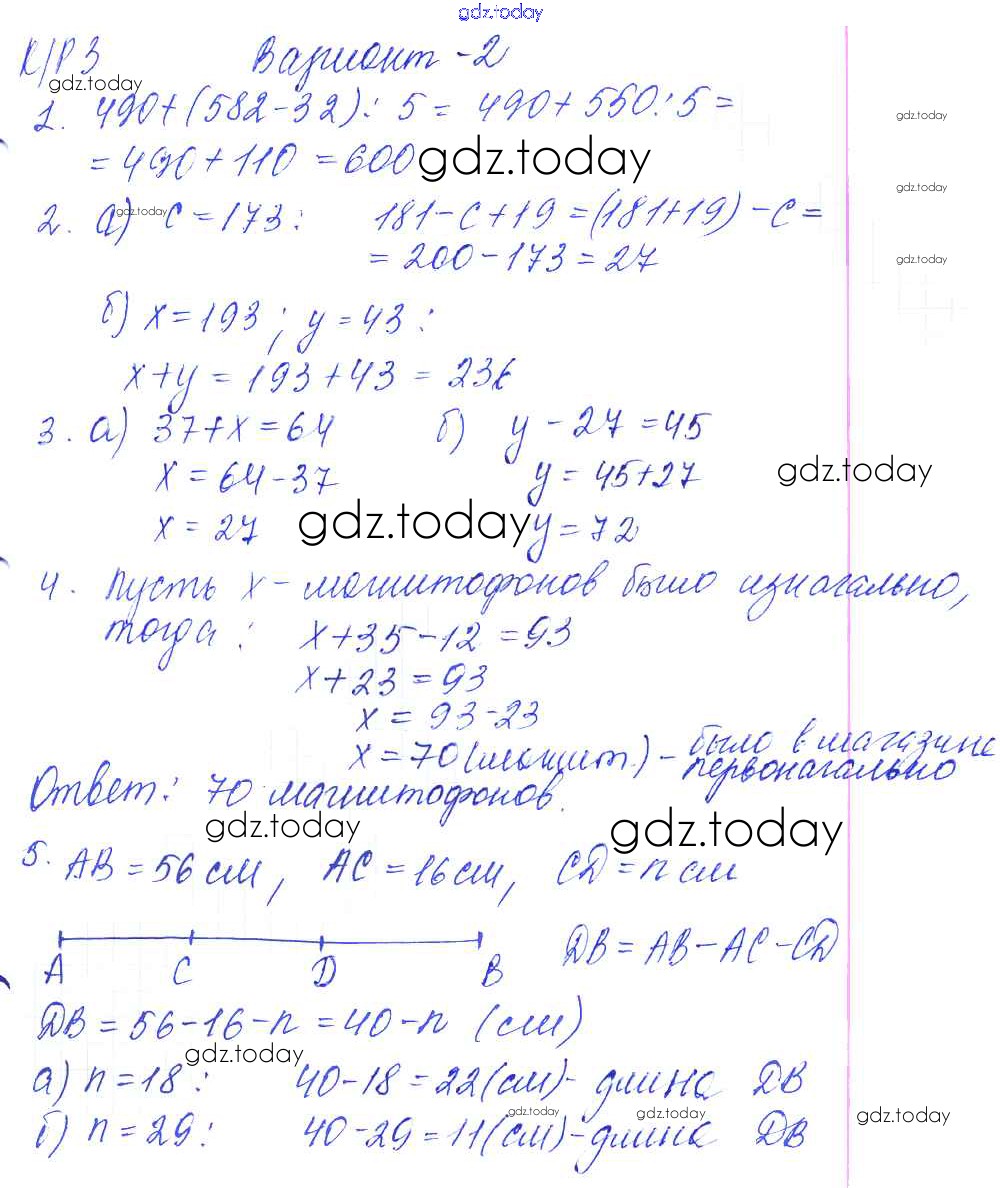 gdz.today
К/Р 3 Вариант -2
gdz.today
1. 490+(582-32): 5 = 490+550:5 =
gdz.today
= 490+110 = 600 gdz.today
gdz.today
2. а) c = 173: 181-c+19 = (181+19)-c =
gdz.today
= 200-173 = 27
gdz.today
б) x = 193; y = 43:
x+y = 193+43 = 236
3. а) 37+x = 64 б) y - 27 = 45
x = 64-37 y = 45+27 gdz.today
x = 27 gdz.today y = 72
4. Пусть x - магнитофонов было изначально,
тогда: x+35-12 = 93
x+23 = 93
x = 93-23
x = 70 (магнит.) - было в магазине
первоначально
Ответ: 70 магнитофонов.
gdz.today gdz.today
5. AB = 56 см, AC = 16 см, CD = n см
A C D B DB = AB-AC-CD
DB = 56-16-n = 40-n (см)
gdz.today
а) n = 18: 40-18 = 22 (см)- длина DB
gdz.today gdz.today gdz.today
б) n = 29: 40-29 = 11 (см)-длина DB